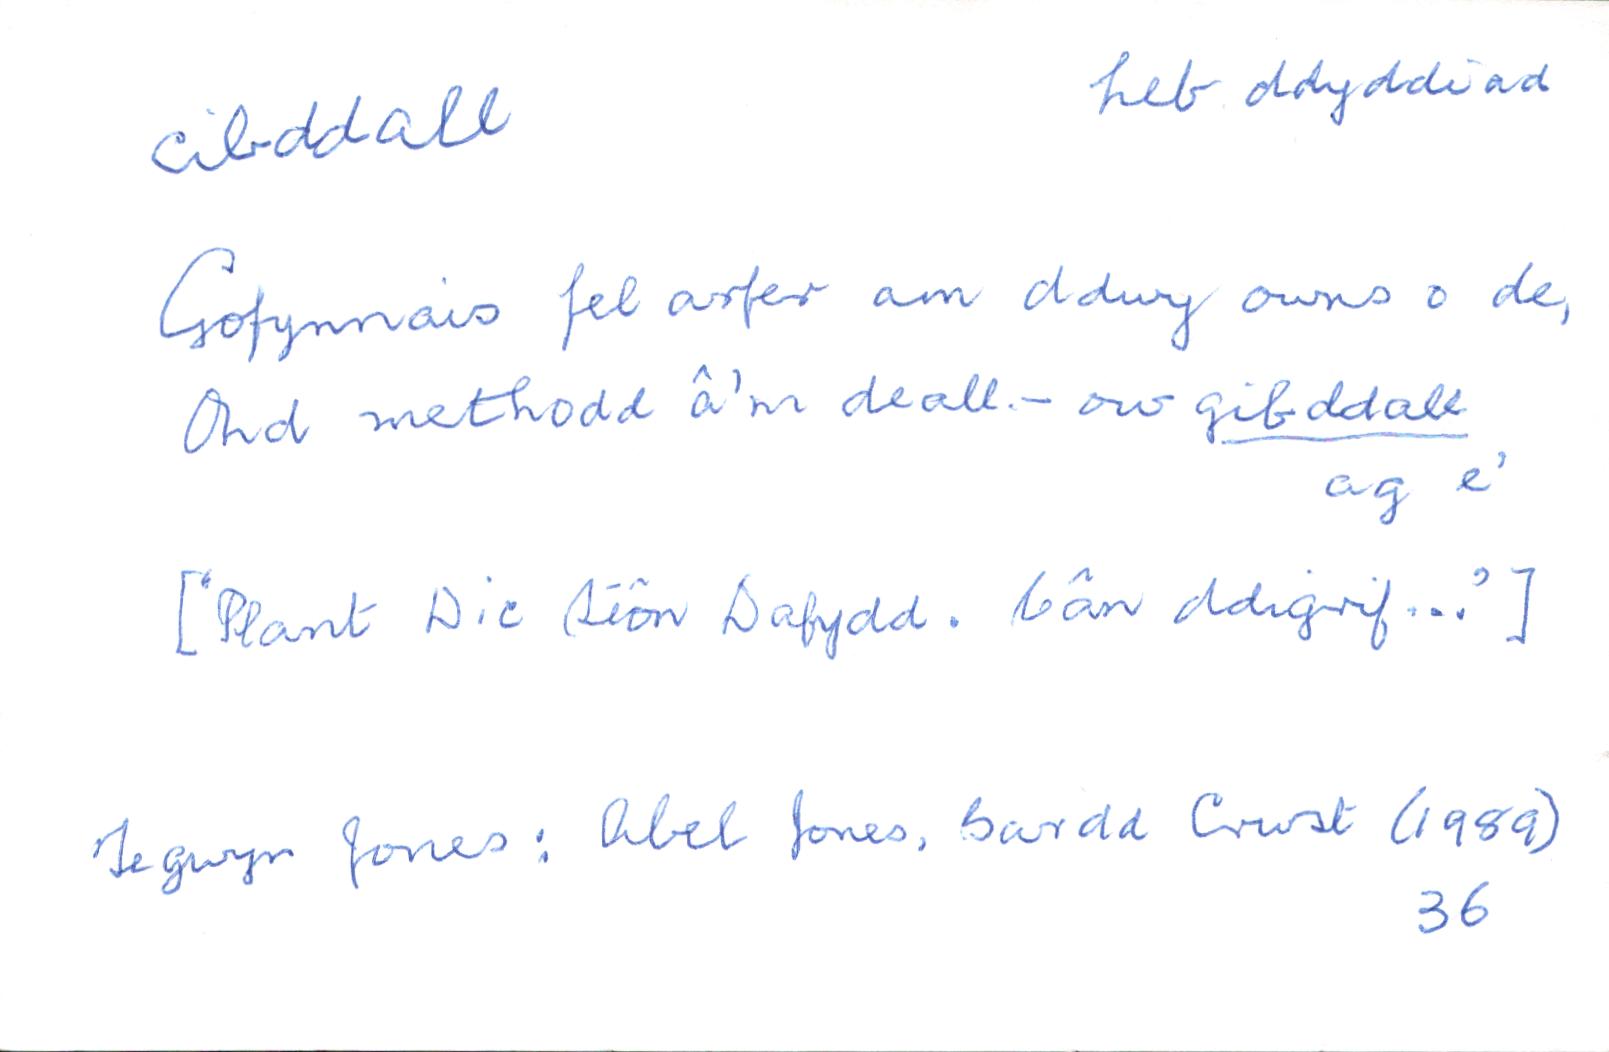 cibddall
heb ddyddiad
Gofynnais fel arfer am ddwy owns o de,
Ond methodd â'm deall. – ow gibddall
ag e'
['Plant Dic Siôn Dafydd. Cân ddigrif...']
Tegwyn Jones: Abel Jones, Bardd Crwst (1989)
36